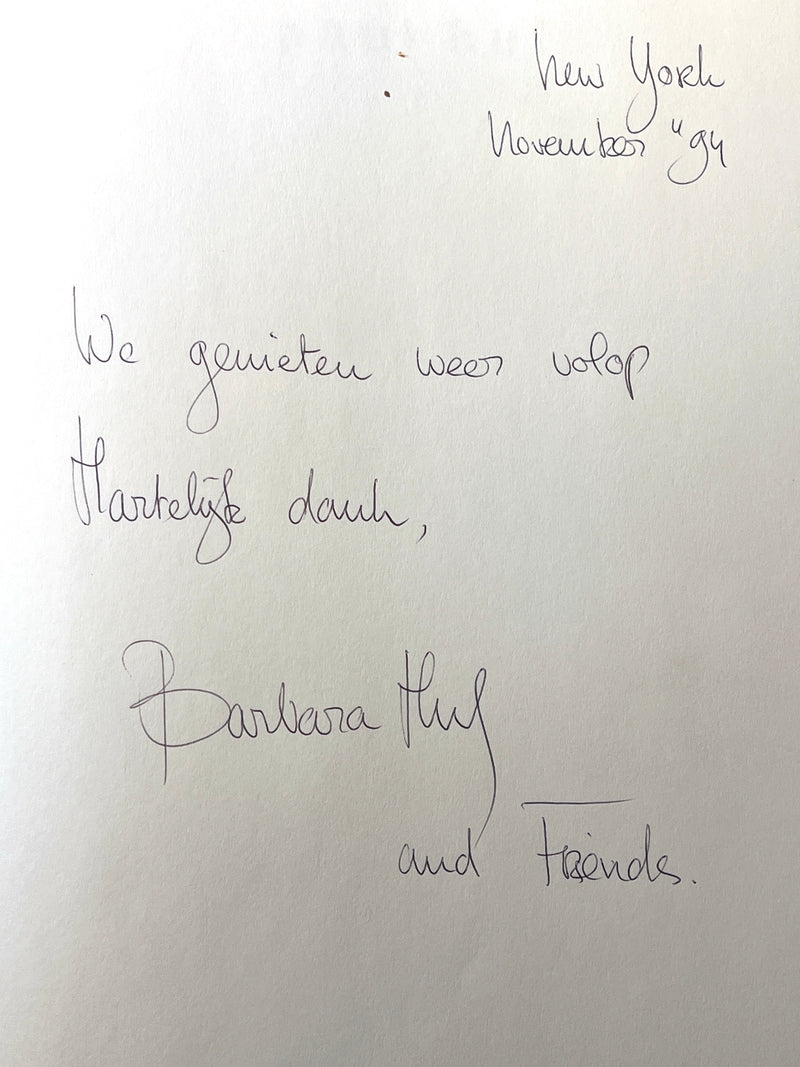 New York
November "94
We genieten weer volop
Hartelijk dank,
Barbara Huf
and Friends.